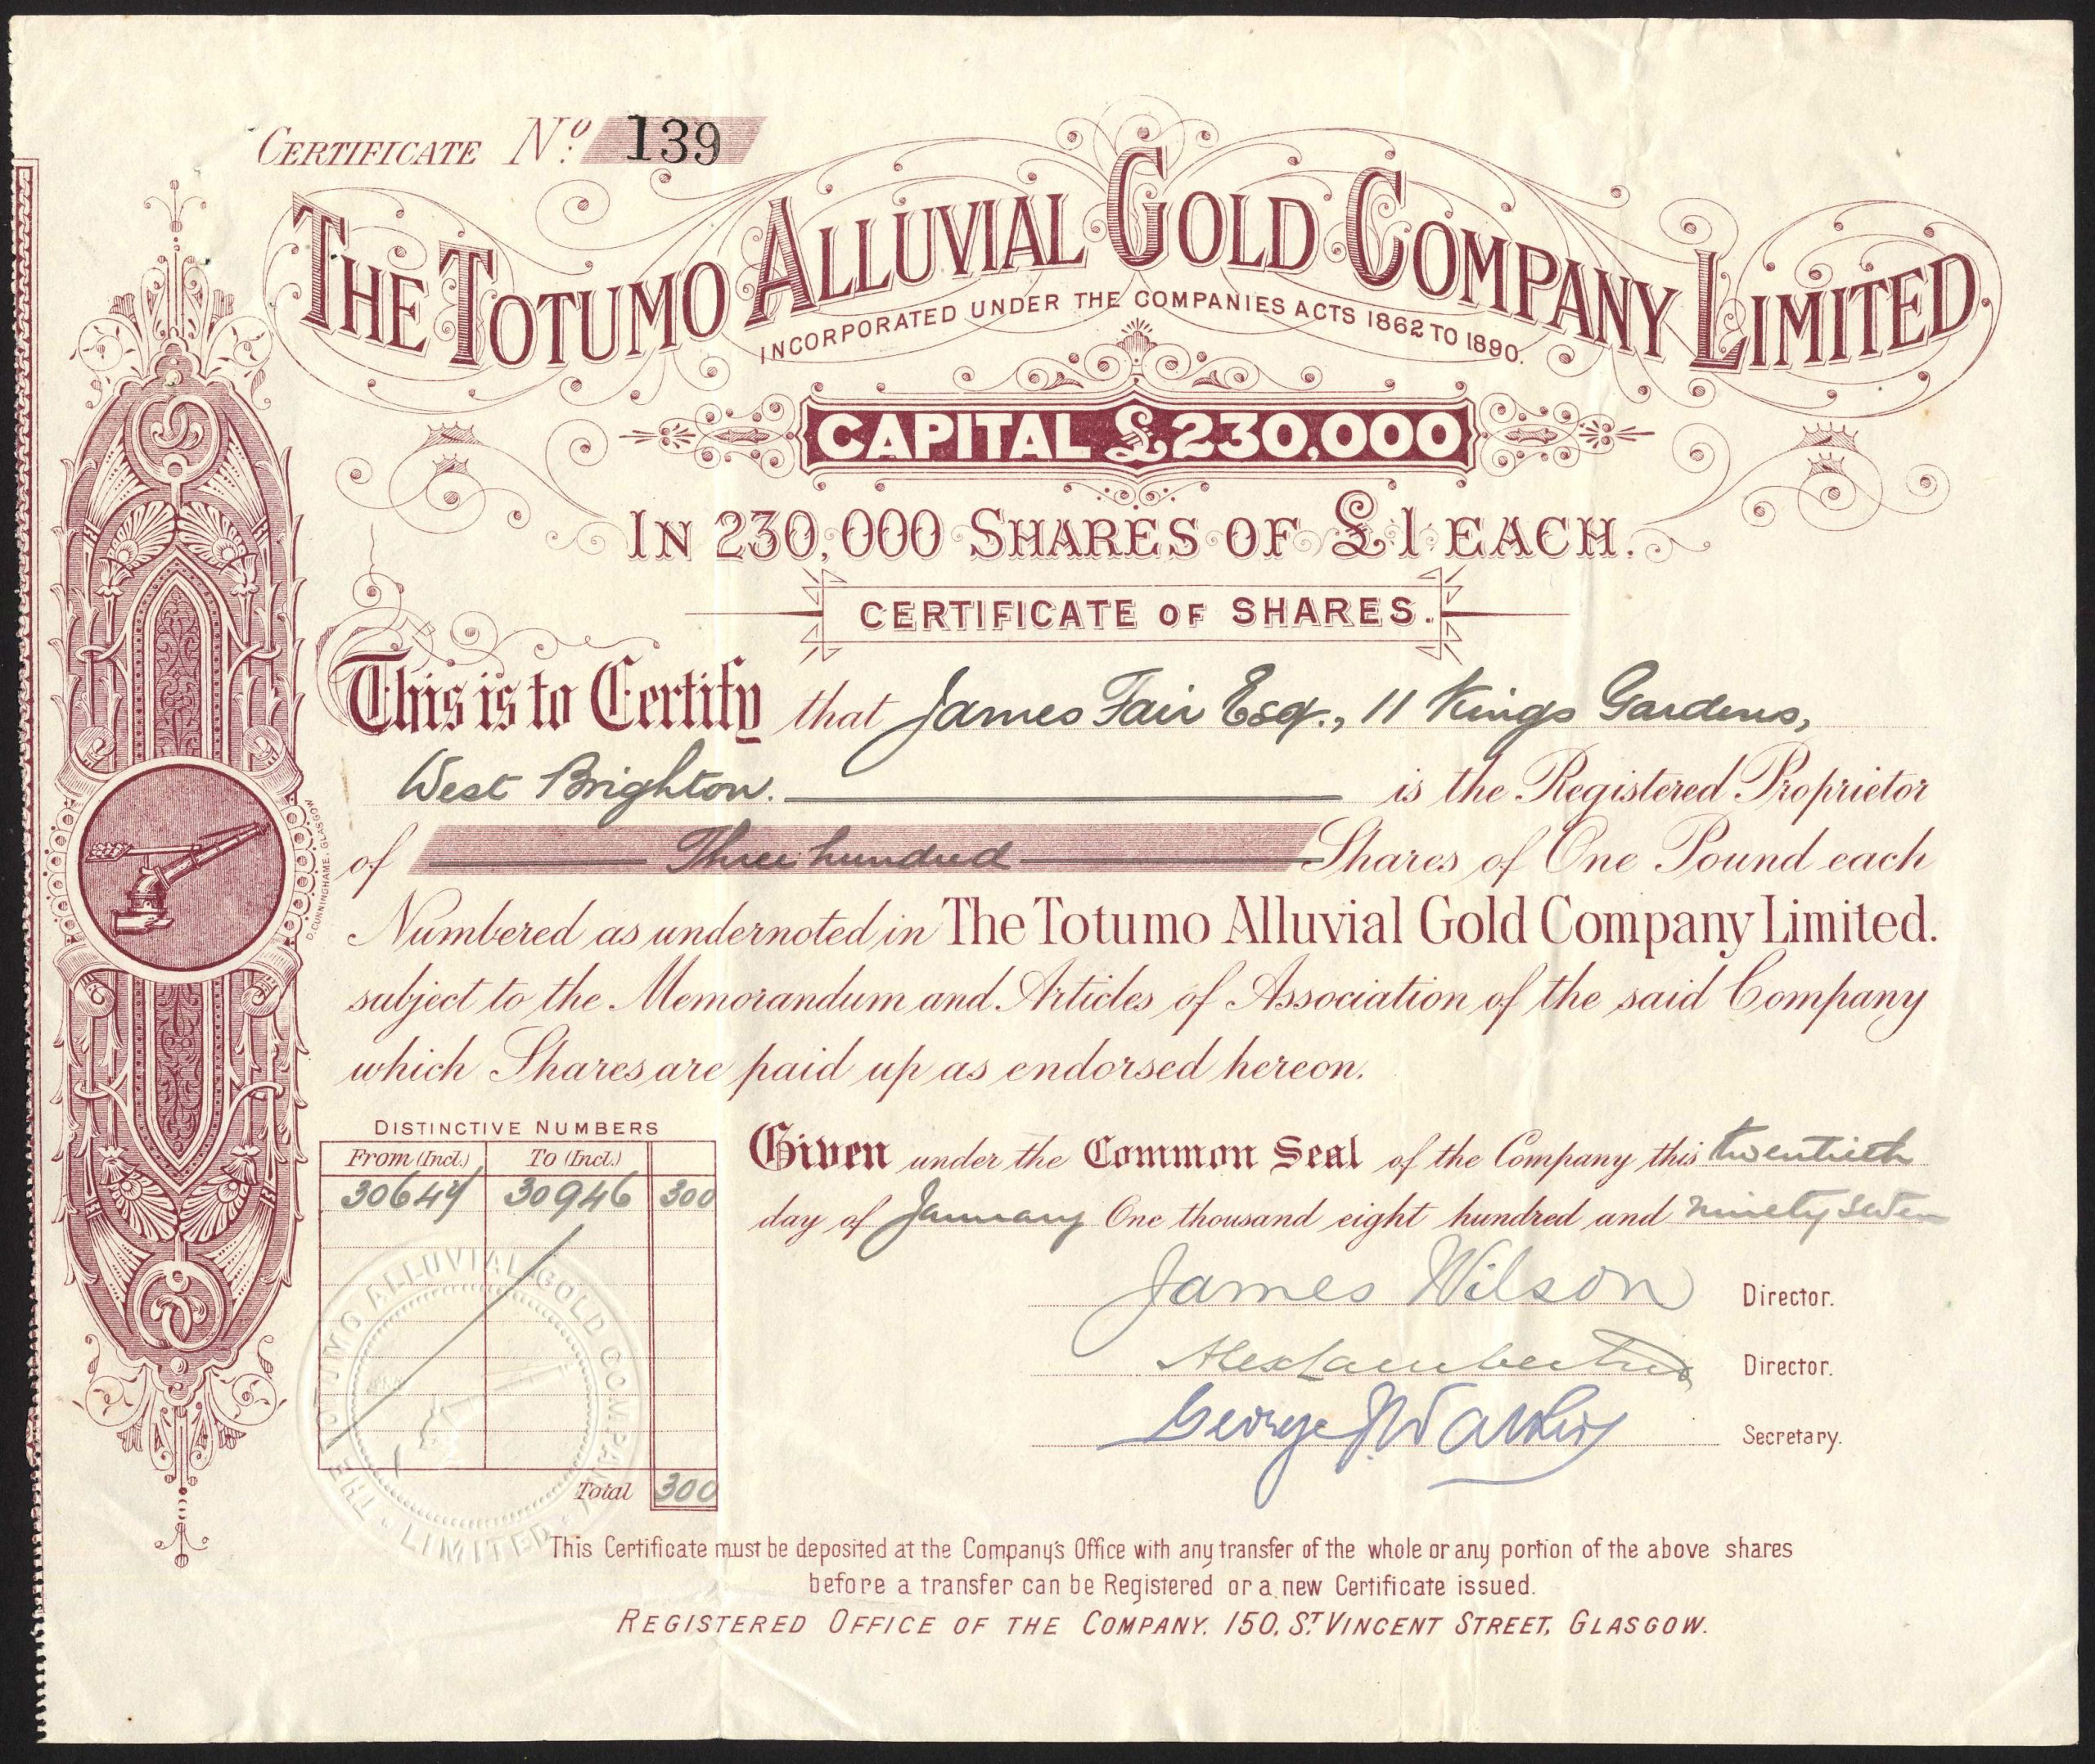 CERTIFICATE No. 139
THE TOTUMO ALLUVIAL GOLD COMPANY LIMITED.
INCORPORATED UNDER THE COMPANIES ACTS 1862 TO 1890.
CAPITAL £230,000
IN 230,000 SHARES OF £1 EACH.
CERTIFICATE OF SHARES.
This is to Certify that James Fair Esqr., 11 Kings Gardens,
West Brighton. is the Registered Proprietor
of Three hundred Shares of One Pound each
Numbered as undernoted in The Totumo Alluvial Gold Company Limited.
subject to the Memorandum and Articles of Association of the said Company
which Shares are paid up as endorsed hereon.
D. CUNNINGHAME, GLASGOW
DISTINCTIVE NUMBERS
From (Incl.) To (Incl.)
30647 30946 300
Total 300
THE TOTUMO ALLUVIAL GOLD COMPANY LIMITED
Given under the Common Seal of the Company this twentieth
day of January One thousand eight hundred and ninety seven
James Wilson Director.
Director.
George Secretary.
This Certificate must be deposited at the Company's Office with any transfer of the whole or any portion of the above shares
before a transfer can be Registered or a new Certificate issued.
REGISTERED OFFICE OF THE COMPANY. 150, ST. VINCENT STREET, GLASGOW.